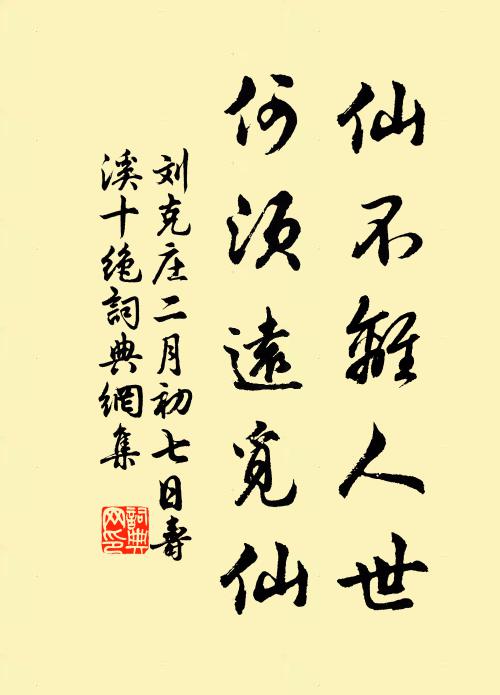 仙不離人世
何須遠覓仙
刘克庄二月初七日壽
溪十绝詞典網集
詞典
网印